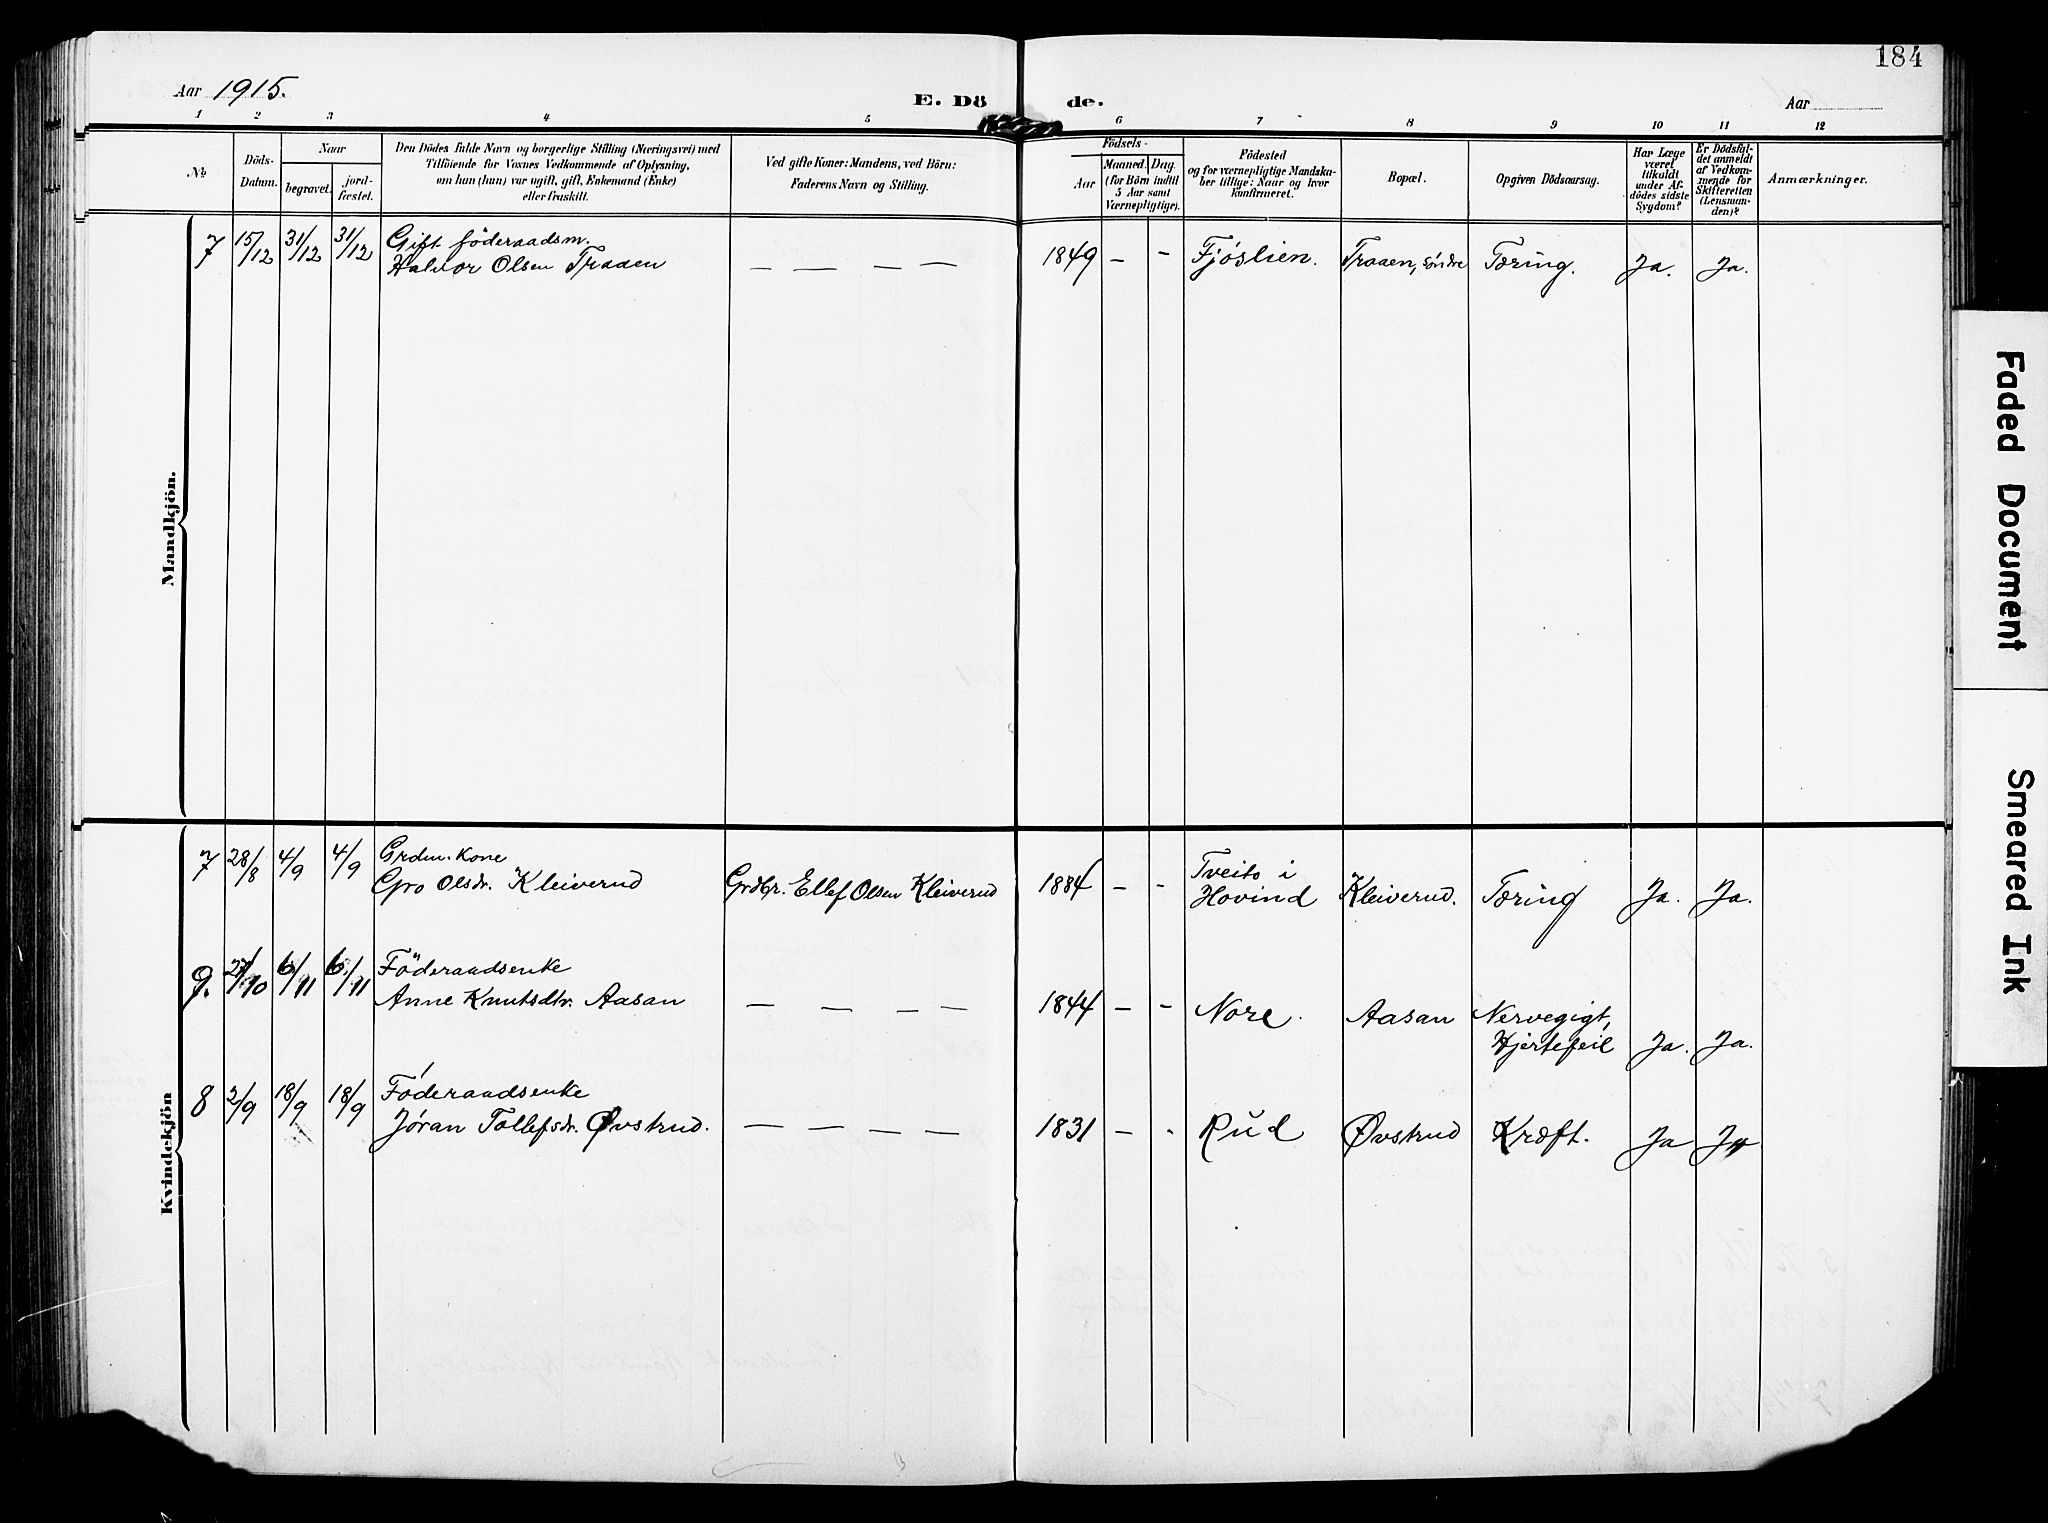 184
Aar 1915.
E. Dö de.
Aar
1 2 3 4 5 6 7 8 9 10 11 12
№
Döds-
Datum.
Naar
begravet.
jord-
fæstet.
Den Dödes fulde Navn og borgerlige Stilling (Næringsvei) med
Tilföiende for Voxnes Vedkommende af Oplysning,
om han (hun) var ugift, gift, Enkemand (Enke)
eller fraskilt.
Ved gifte Koner: Mandens, ved Börn:
Faderens Navn og Stilling.
Födsels-
Aar
Maaned. Dag.
(for Börn indtil
5 Aar samt
Værnepligtige).
Födested
og for værnepligtige Mandska-
ber tillige: Naar og hvor
konfirmeret.
Bopæl.
Opgiven Dödsaarsag.
Har Læge
været
tilkaldt
under Af-
dödes sidste
Sygdom?
Er Dödsfal-
det anmeldt
af Vedkom-
mende for
Skifteretten
(Lensman-
den)?
Anmærkninger.
Mandkjön.
7 15/12 31/12 31/12 Gift föderaadsm.
Halvor Olsen Traaen — — — — 1849 — – Fjøslien. Traaen, søndre Tæring. Ja. Ja.
Kvindekjön
7 28/8 4/9 4/9 Grdm. Kone
Gro Olsdr. Kleiverud Grdbr. Ellef Olsen Kleiverud 1884 — - Tveito i
Hovind Kleiverud. Tæring Ja. Ja.
9. 27/10 6/11 6/11 Föderaadsenke
Anne Knutsdtr. Aasan — — — — 1844 — – Nore. Aasan Nervegigt,
Hjertefeil Ja. Ja.
8 2/9 18/9 18/9 Føderaadsenke
Jøran Tollefsdr. Øvstrud. — — — — 1831 — - Rud Øvstrud Kræft. Ja Ja
Faded Document
Smeared Ink